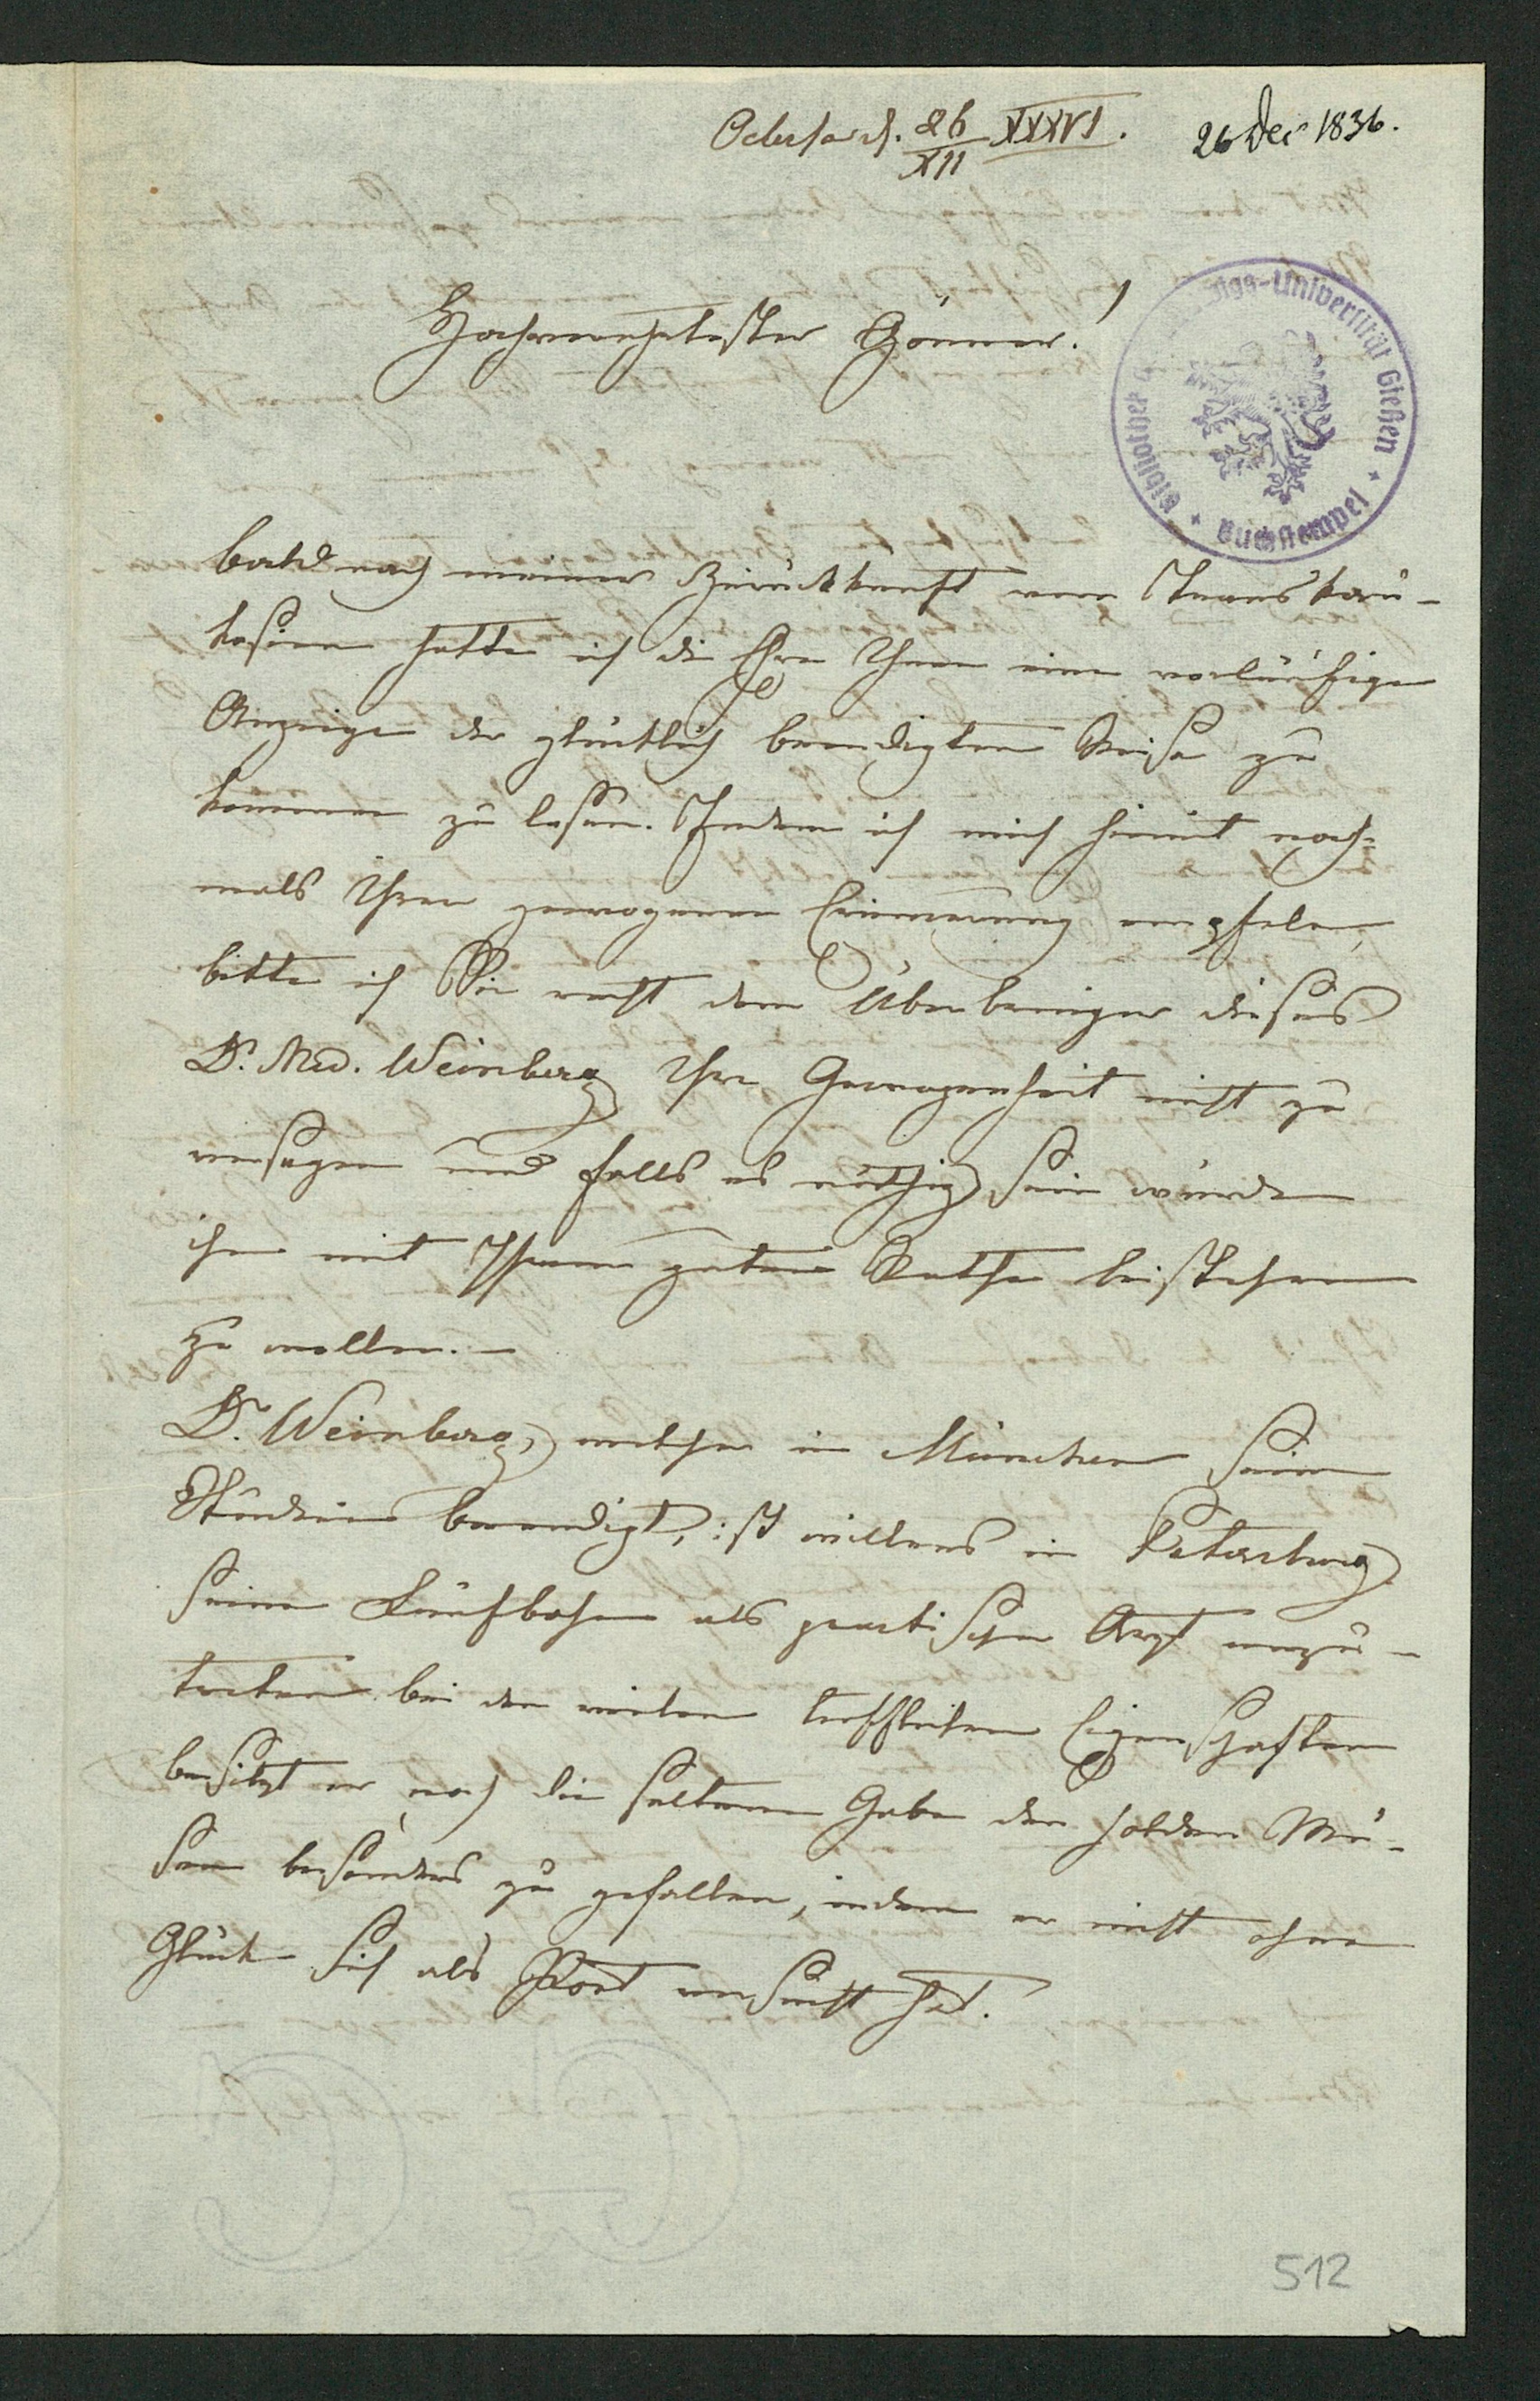 26/XII XXXVI. 26 Dec 1836.
Hochverehrtester Gönner!
Bibliothek Universität Gießen
Buchstempel
bald nach meiner Zurückkunft von Transkau-
kasien hatte ich die Ehre Ihnen eine vorläufige
Anzeige der glücklich beendigten Reise zu
kommen zu lassen. Indem ich mich hiemit noch-
mals Ihrer gewogenen Erinnerung empfele,
bitte ich Sie recht dem Überbringer dieses
Dr. Med. Weinberg Ihre Gewogenheit nicht zu
versagen und falls es nöthig sein würde
ihm mit Ihrem guten Rathe beistehen
zu wollen. —
Dr. Weinberg, welcher in München seine
Studien beendigt, ist willens in Petersburg
seine Laufbahn als practischer Arzt anzu-
treten bei den vielen trefflichen Eigenschaften
besitzt er noch die seltene Gabe den holden Mu-
sen besonders zu gefallen, indem er nicht ohne
Glück sich als Poet versucht hat.
512